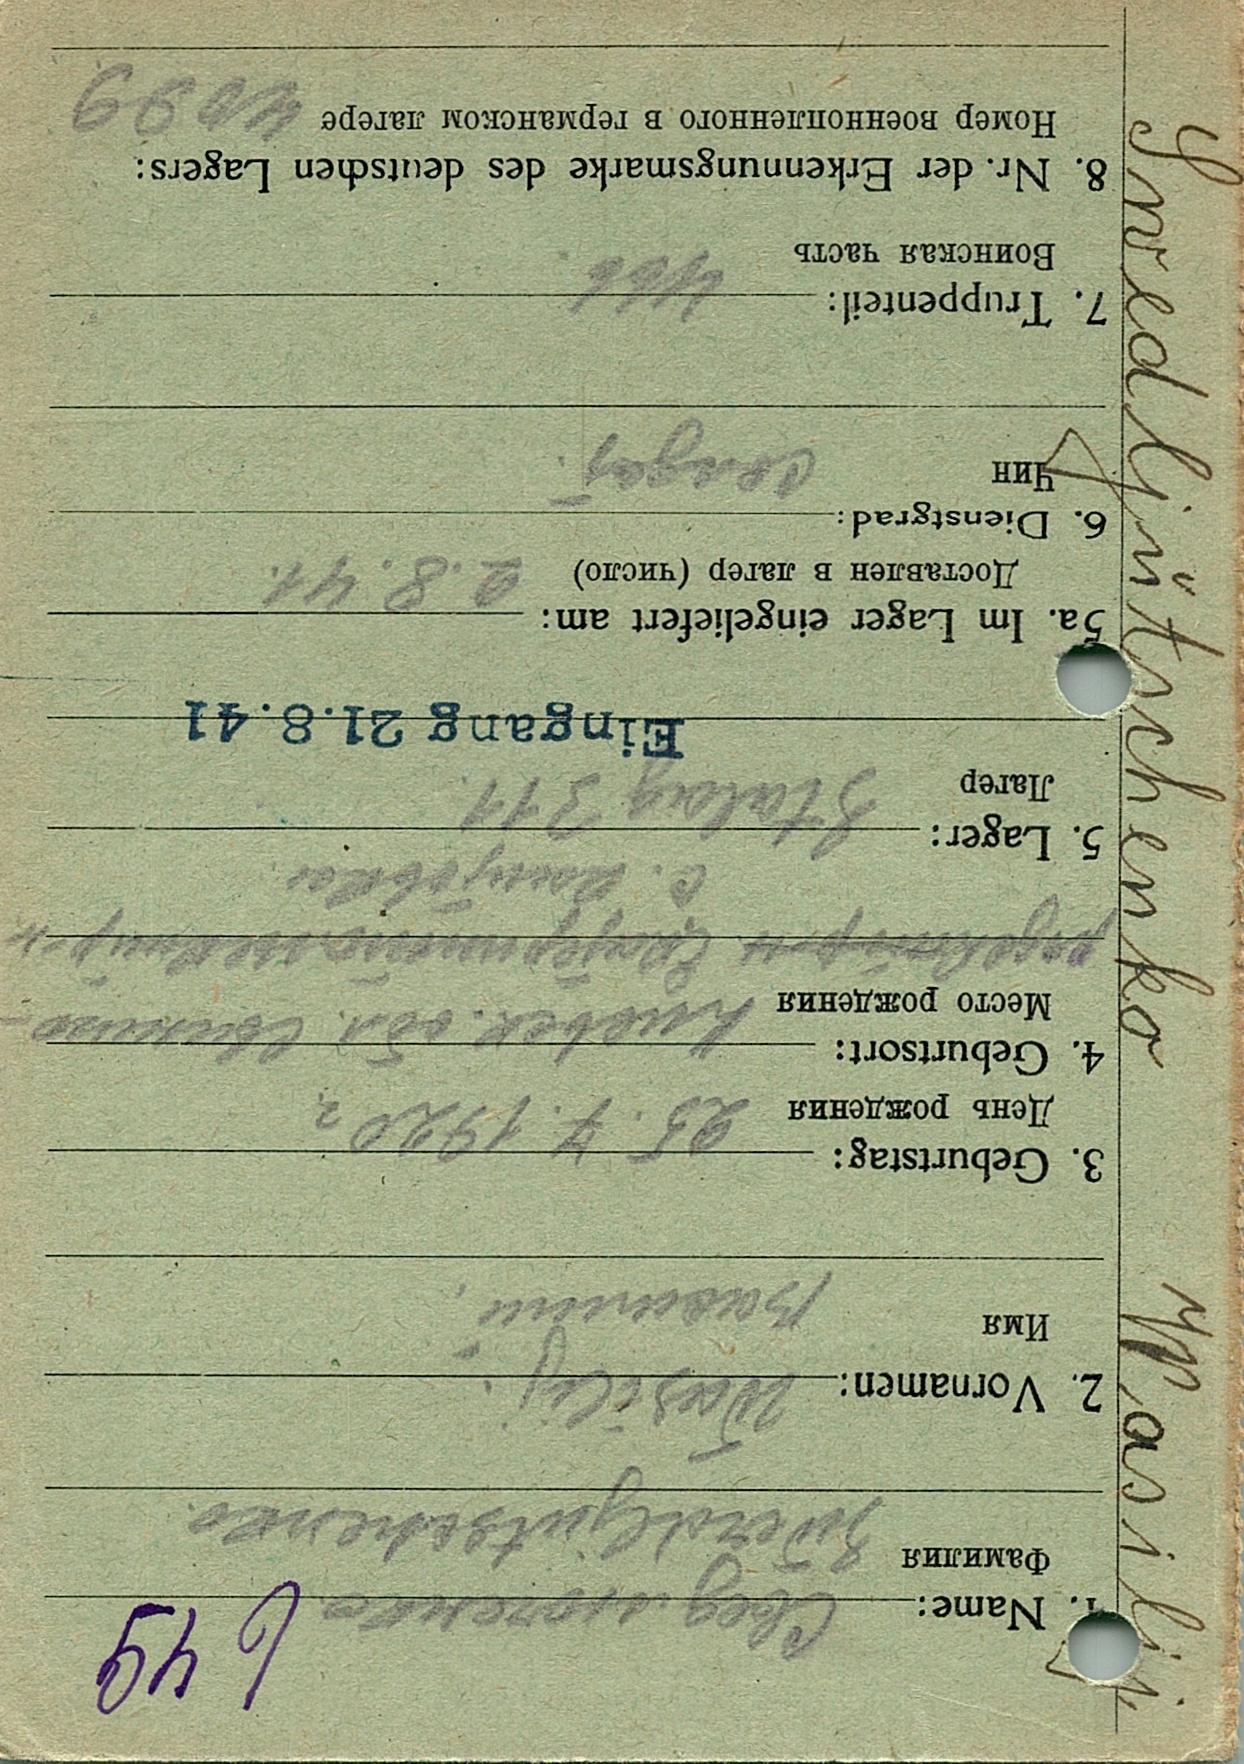 Swedljutschenko Wasilij.
549
1. Name: Сведлюченко.
Фамилия Swedljutschenko.
2. Vornamen: Wasilij.
Имя Василий.
3. Geburtstag:
День рождения 25. 7. 1920 г.
4. Geburtsort:
Место рождения Киевск. обл.
с.
5. Lager:
Лагер Stalag 311.
Eingang 21.8.41
5a. Im Lager eingeliefert am:
Доставлен в лагер (число) 2. 8. 41.
6. Dienstgrad:
Чин Солдат.
7. Truppenteil:
Воинская часть 466
8. Nr. der Erkennungsmarke des deutschen Lagers:
Номер военнопленного в германском лагере 11099